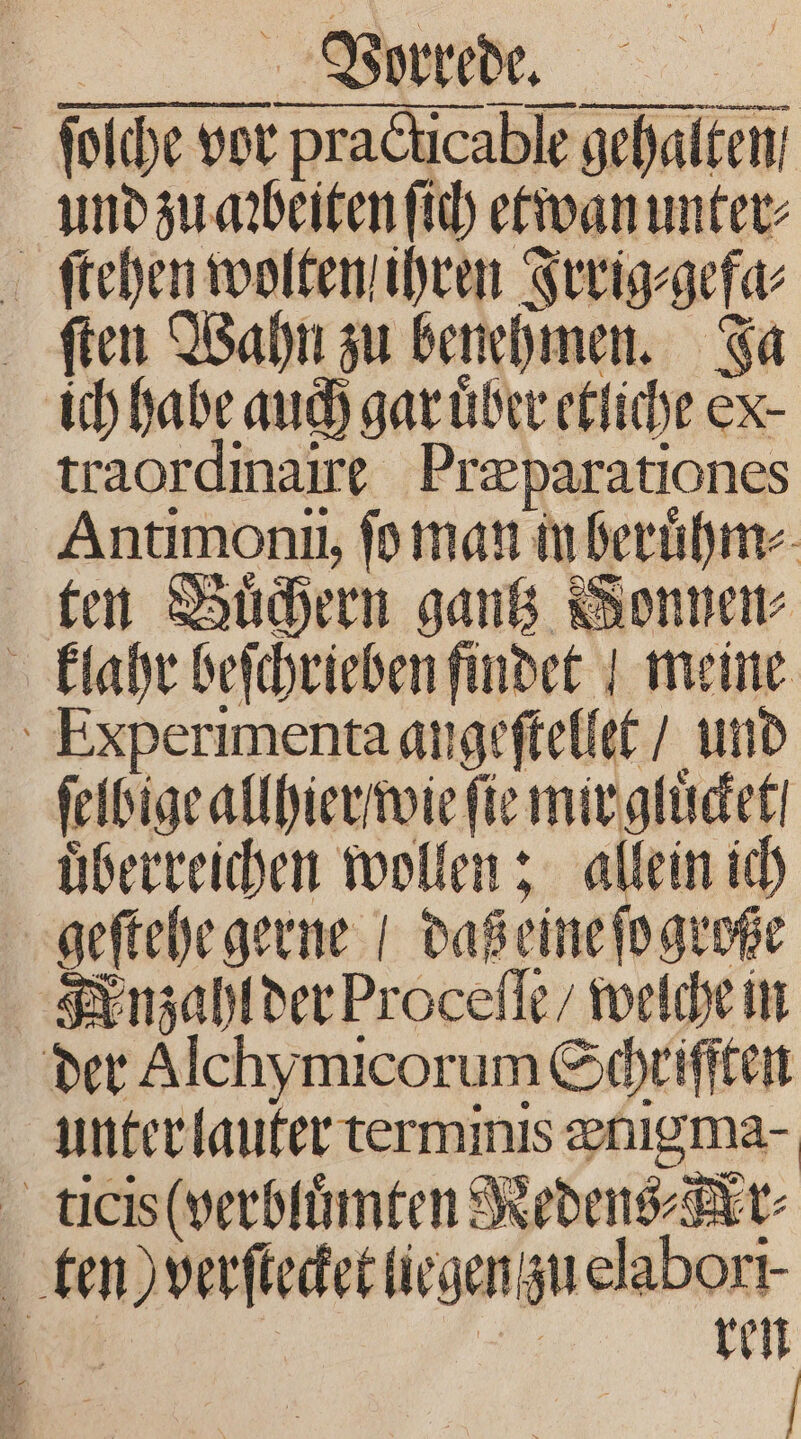 Vorrede.
ſolche vor practicable gehalten/
und zu arbeiten ſich etwan unter⸗
ſtehen wolten/ ihren Irrig⸗gefa⸗
ſten Wahn zu benehmen. Ja
ich habe auch gar uͤber etliche ex-
traordinaire Præparationes
Antimonii, ſo man in beruͤhm⸗
ten Buͤchern gantz Sonnen⸗
klahr beſchrieben findet / meine
Experimenta angeſtellet / und
ſelbige allhier/ wie ſie mir gluͤcket/
uͤberreichen wollen; allein ich
geſtehe gerne / daß eine ſo große
Anzahl der Proceſſe/ welche in
der Alchymicorum Schrifften
unter lauter terminis ænigma-
ticis (verbluͤmten Redens⸗Ar⸗
ten) verſtecket liegen/ zu elabori-
ren